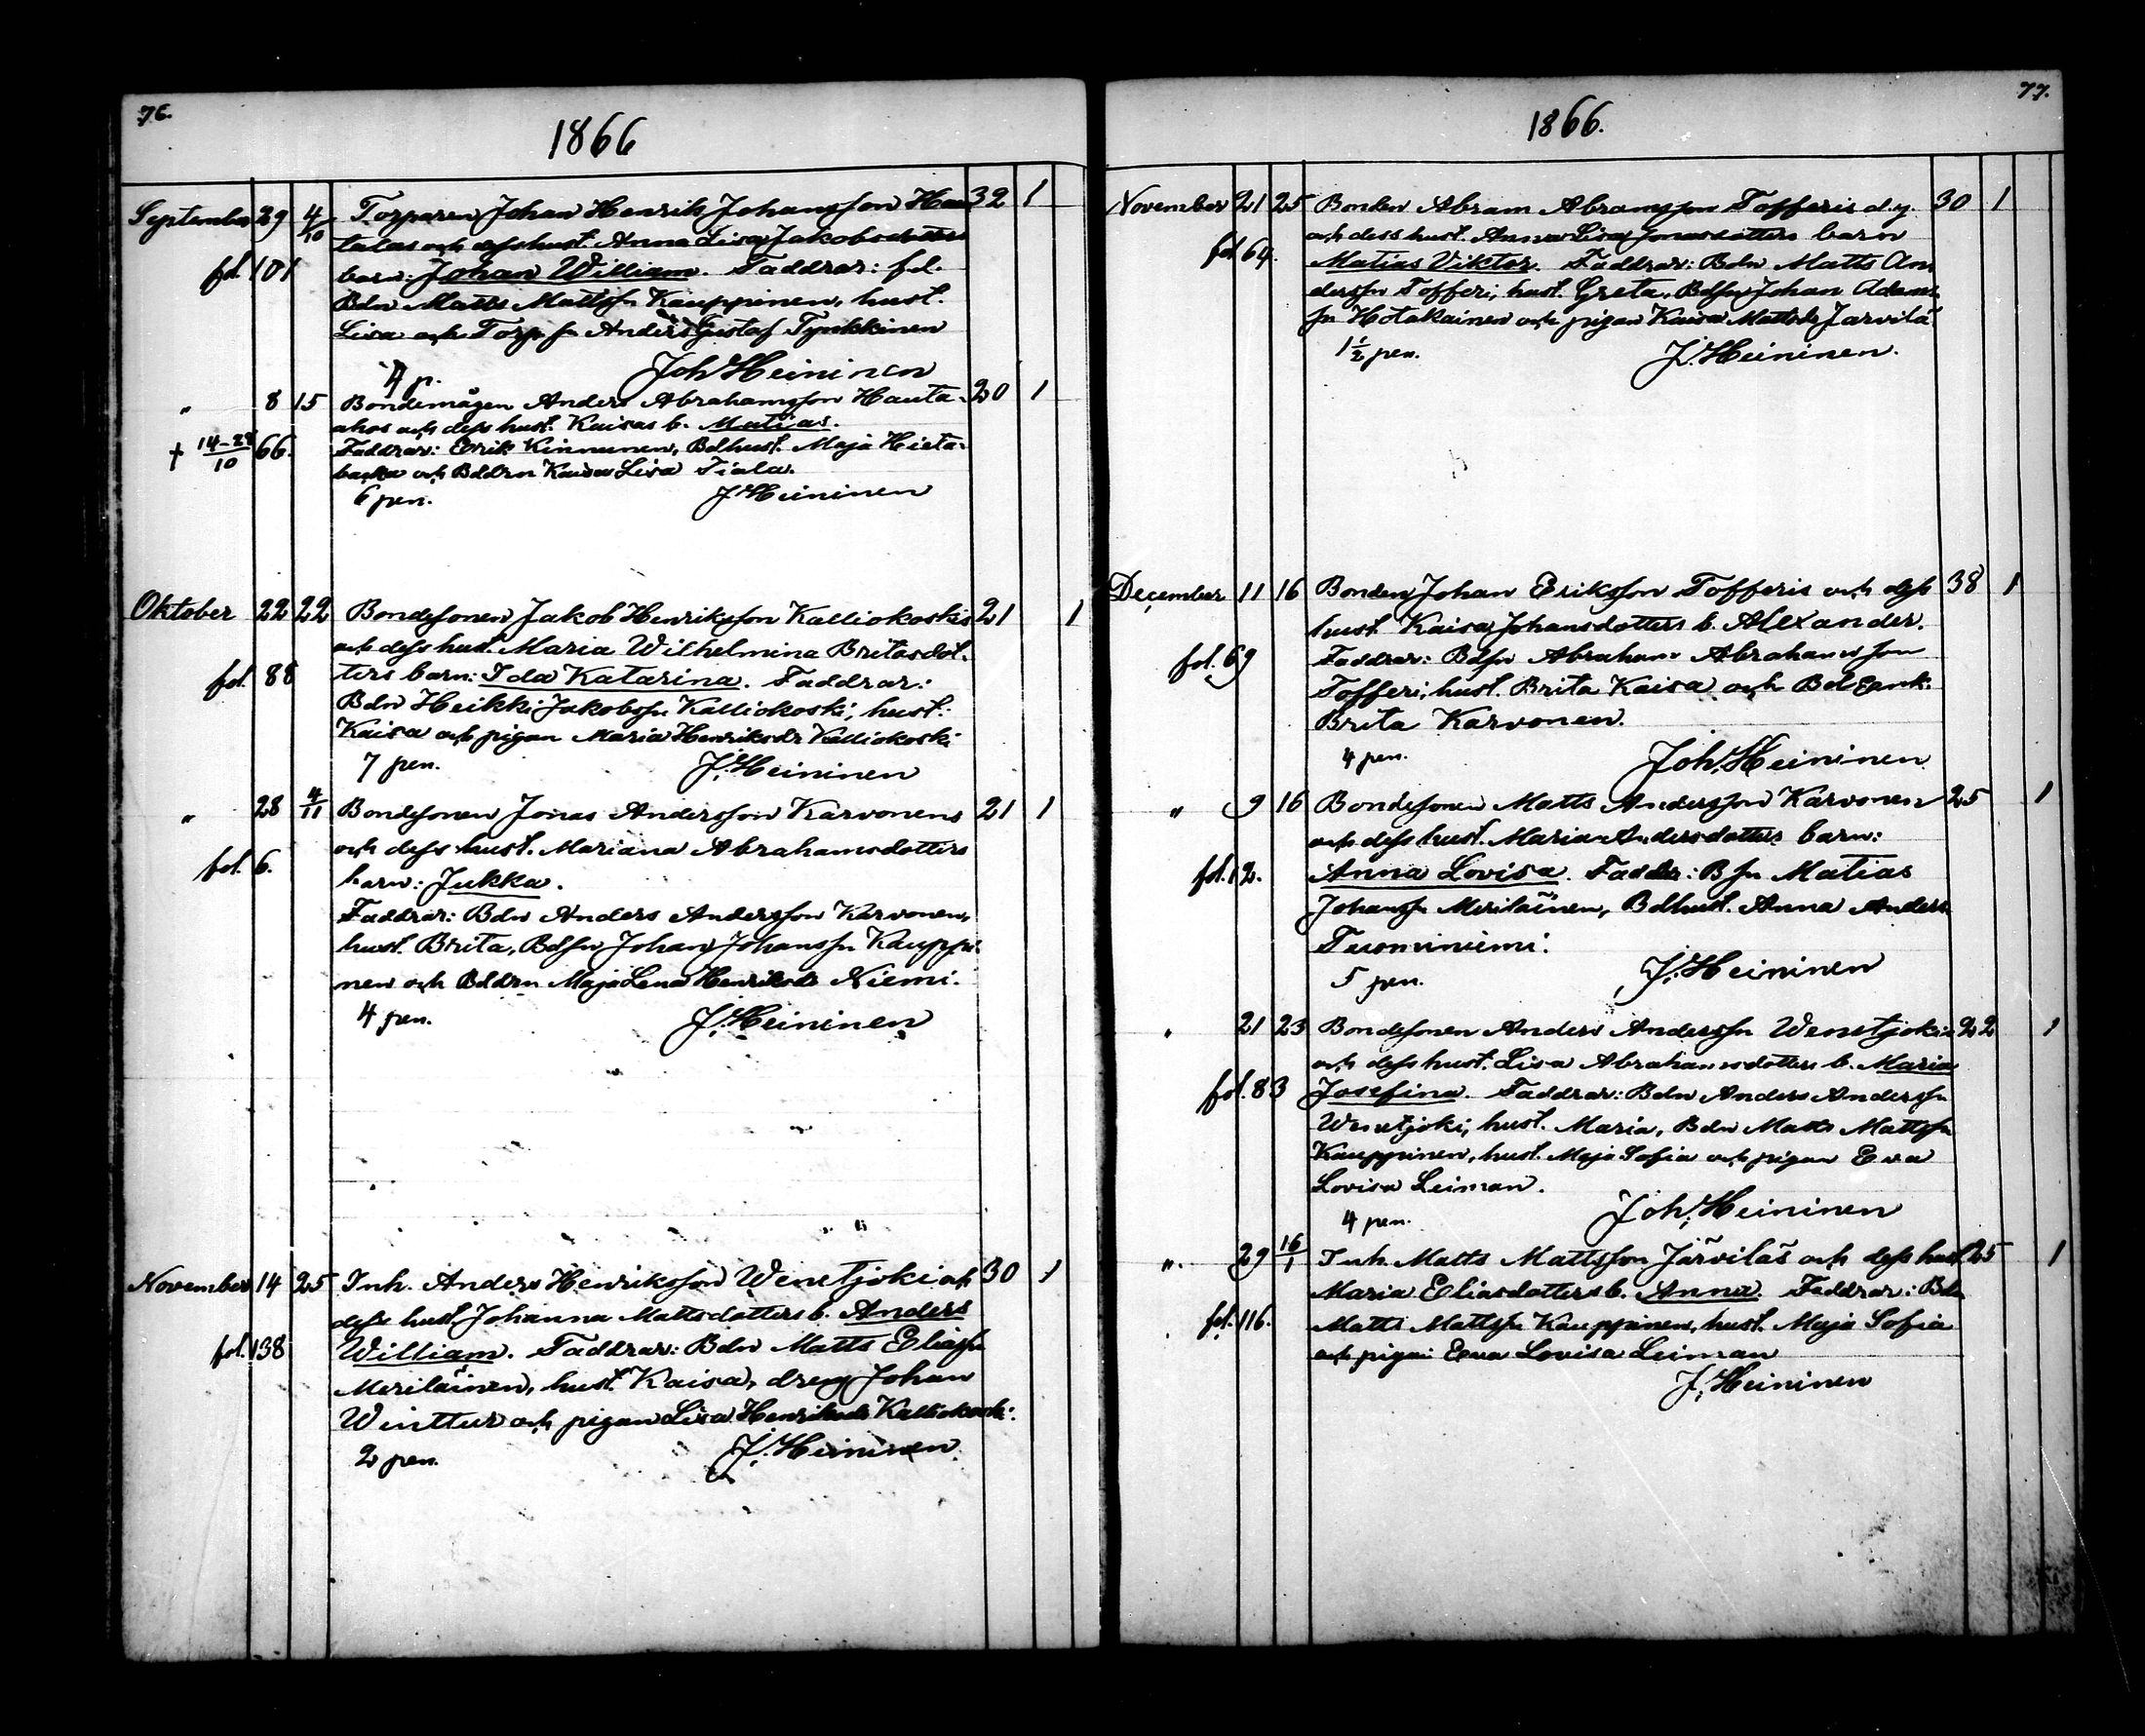 76.
1866
September 29 4/10 Torparen Johan Henrik Johansson Hau 32 1
talas och dess hust. Anna Lisa Jakobsdotters
fol. 101 barn: Johan William. Faddrar: fd.
Bdn Matts Mattssn Kauppinen, hust.
Lisa och Torp sn Anders Gustaf Tynkkinen
4 p. Joh Heininen
" 8 15 Bondemågen Anders Abrahamsson Hauta- 20 1
ahos och dess hust. Kaisas b. Matias.
† 14-28/10 66. Faddrar: Erik Kinnunen, Bdhust. Maja Hieta-
och Bddrn Kaisa Lisa Tiala.
6 pen. J. Heininen
Oktober 22 22 Bondesonen Jakob Henriksson Kalliokoskis 21 1
och dess hust. Maria Wilhelmina Britasdot-
fol. 88 ters barn: Ida Katarina. Faddrar:
Bdn Heikki Jakobssn Kalliokoski, hust.
Kaisa och pigan Maria Henriksdr Kalliokoski
7 pen. J. Heininen
" 28 4/11 Bondesonen Jonas Andersson Karvonens 21 1
och dess hust. Mariana Abrahamsdotters
fol. 6. barn: Jukka.
Faddrar: Bdn Anders Andersson Karvonen,
hust. Brita, Bdsn Johan Johanssn Kauppi-
nen och Bddrn Maja Lena Henriksdr Niemi.
4 pen. J. Heininen
November 14 25 Inh. Anders Henriksson Wenetjoki och 30 1
dess hust. Johanna Mattsdotters b. Anders
fol. 138 William. Faddrar: Bdn Matts Eliassn
Meriläinen, hust. Kaisa, dreng Johan
Winttur och pigan Lisa Henriksdr Kalliokoski.
2 pen. J. Heininen
77.
1866.
November 21 25 Bonden Abram Abramsson Tofferis d.y. 30 1
och dess hust. Anna Lisa Jonasdotters barn
fol. 64. Matias Viktor. Faddrar: Bdn Matts An
derssn Tofferi, hust. Greta, Bdsn Johan Adams
sn Hotakainen och pigan Kaisa Mattsdr Järvilä
1 1/2 pen. J. Heininen.
December 11 16 Bonden Johan Eriksson Tofferis och dess 38 1
hust. Kaisa Johansdotters b. Alexander.
fol. 69 Faddrar: Bdsn Abraham Abrahamsson
Tofferi, hust. Brita Kaisa och Bd Eank.
Brita Karvonen.
4 pen. Joh. Heininen
" 9 16 Bondesonen Matts Andersson Karvonen 25 1
och dess hust. Maria Andersdotters barn:
fol. 12. Anna Lovisa. Faddr: B sn Matias
Johanssn Meriläinen, Bdhust. Anna Anders
Tuominiemi.
5 pen. J. Heininen
" 21 23 Bondesonen Anders Anderssn Wenetjokis 22 1
och dess hust. Lisa Abrahamsdotters b. Maria
fol. 83 Josefina. Faddrar: Bdn Anders Anderssn
Wenetjoki, hust. Maria, Bdn Matts Mattssn
Kauppinen, hust. Maja Sofia och pigan Eva
Lovisa Leiman.
4 pen. Joh. Heininen
" 29 16/1 Inh. Matts Mattsson Järviläs och dess hust. 25 1
Maria Eliasdotters b. Anna. Faddrar: Bdn
fol. 116. Matts Mattssn Kauppinen, hust. Maja Sofia
och pigan Eva Lovisa Leiman
J. Heininen